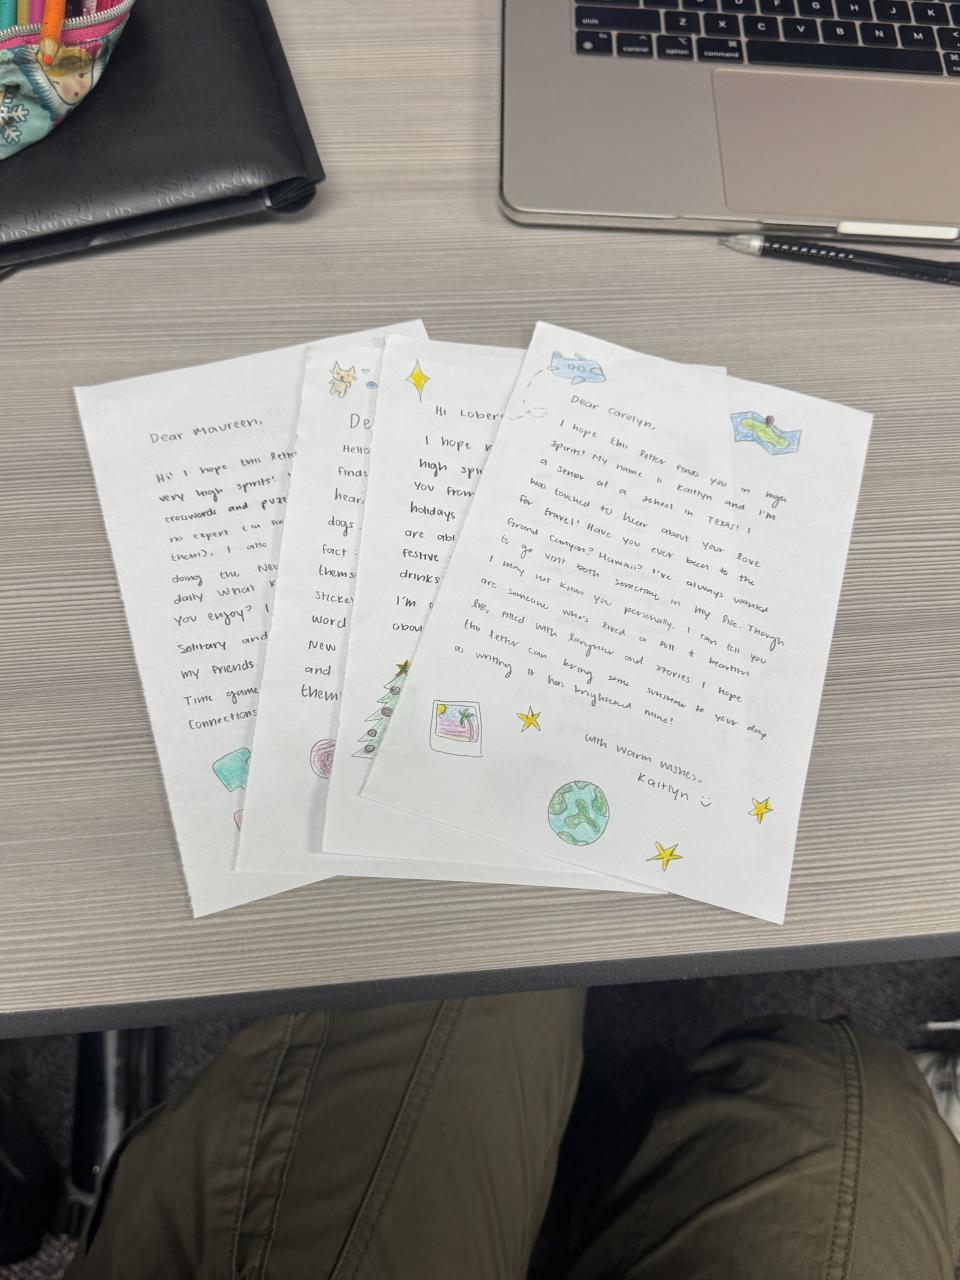 shift
Z
X
C
V
B
N
M
F
G
H
J
K
fn
control
option
command
Dear Maureen,
Hi! I hope this lette
very high spirits!
crosswords and puzz
no expert (
them), I also
doing the New
daily. What k
you enjoy? I
Solitary and
my friends.
Time game
Connections
De
Hello
finds
hear
dogs
fact
thems
sticke
word
New
and
them
Hi Lober
I hope
high spi
you from
holidays
are abl
festive
drinks
I'm
about
Dear Carolyn,
I hope this letter finds you in high
spirits! My name is Kaitlyn and I'm
a senior at a school in Texas! I
was touched to hear about your love
for travel! Have you ever been to the
Grand Canyon? Hawaii? I've always wanted
to go visit both sometime in my life. Though
I may not know you personally, I can tell you
are someone who's lived a full & beautiful
life, filled with laughter and stories. I hope
this letter can bring some sunshine to your day
as writing it has brightened mine!
with warm wishes,
Kaitlyn :)